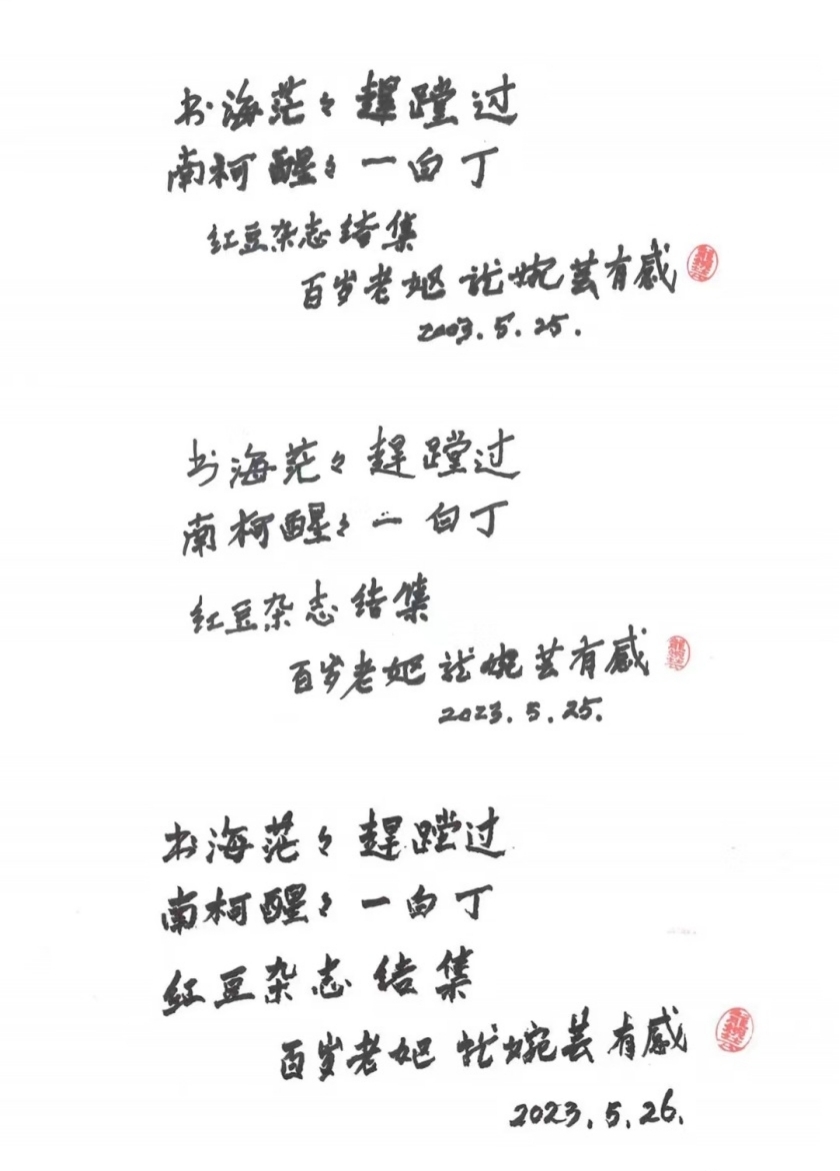 书海茫々趕蹚过
南柯醒々一白丁
红豆杂志结集
百岁老妪 婉芸有感
2003.5.25.
书海茫々趕蹚过
南柯醒々一白丁
红豆杂志结集
百岁老妪 婉芸有感
2023.5.25.
书海茫々趕蹚过
南柯醒々一白丁
红豆杂志结集
百岁老妪 婉芸有感
2023.5.26.